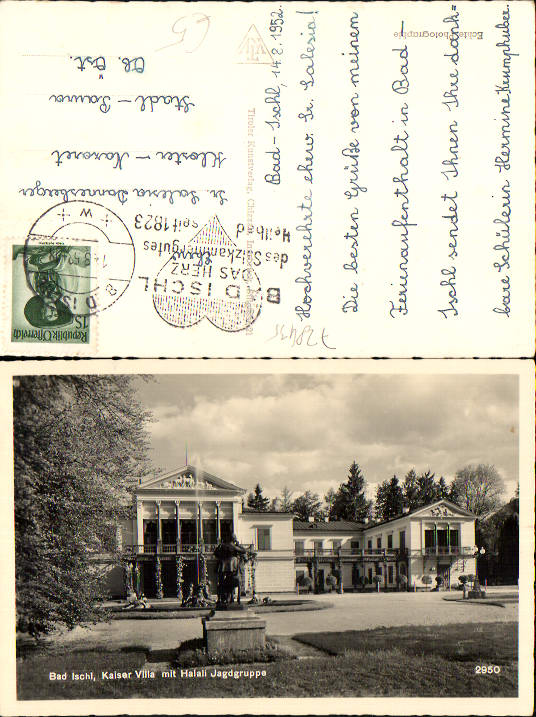 Bad-Ischl, 14.8.1952.
Hochverehrte ehrw. Sr. Salesia!
Die besten Grüße von meinem
Ferienaufenthalt in Bad-
Ischl sendet Ihnen Ihre dank=
bare Schülerin Hermine Krumphuber.
Echte Photographie
Tiroler Kunstverlag,
Sr. Salesia Dannesberger
Kloster - Nazaret
Stadl - Paura
Ob. Öst.
BAD ISCHL
DAS HERZ
des Salzkammergutes
Heilbad
seit 1823
Republik Österreich
1S
728435
Bad Ischl, Kaiser Villa mit Halali Jagdgruppe
2950